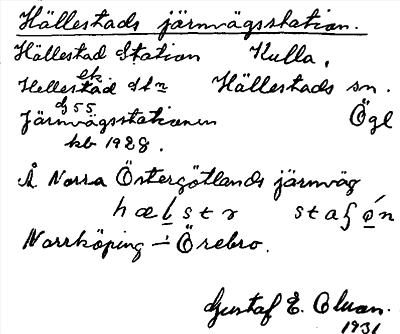 Hällestads järnvägsstation.
Hällestad Station Kulla.
Hellestad ek stn Hällestads sn.
dj 55
Järnvägsstationen Ögl
kb 1928.
Å Norra Östergötlands järnväg
hælstr
Norrköping – Örebro.
Gustaf E.
1931